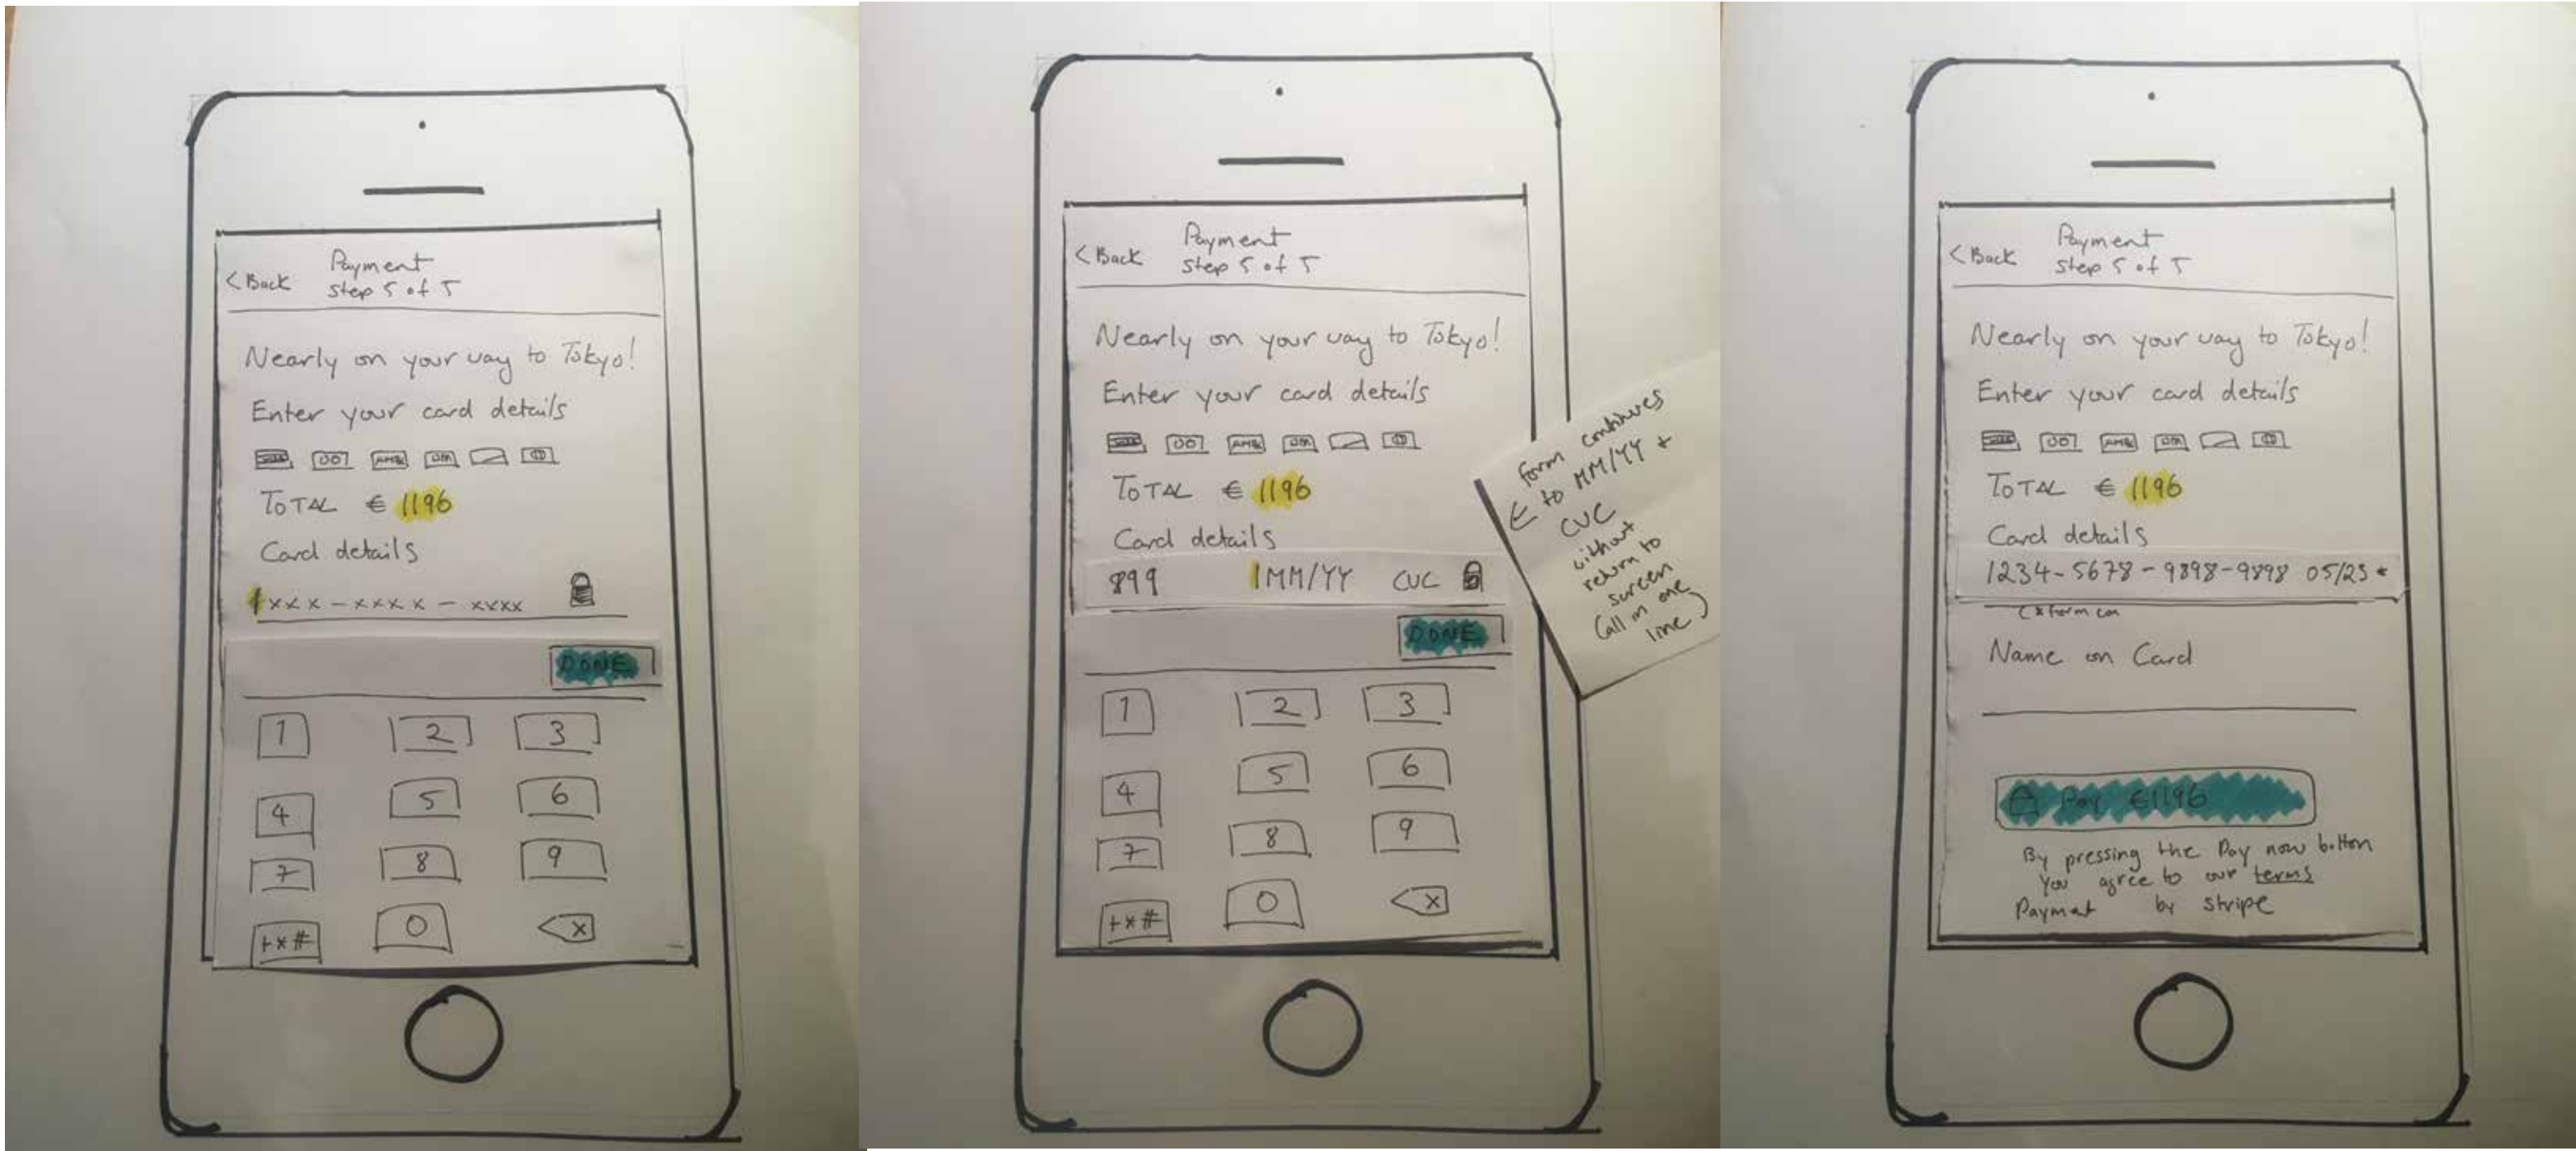 Payment
< Back
Step 5 of 5
Nearly on your way to Tokyo!
Enter your card details
AMEX
TOTAL € 1196
Card details
xxx - xxxx - xxxx
DONE
1 2 3
4 5 6
7 8 9
+*# 0 X
Payment
< Back
Step 5 of 5
Nearly on your way to Tokyo!
Enter your card details
AMEX
TOTAL € 1196
Card details
899 MM/YY CVC
DONE
1 2 3
4 5 6
7 8 9
+*# 0 X
form continues
to MM/YY +
CVC
without
return to
screen
(all in one
line)
Payment
< Back
Step 5 of 5
Nearly on your way to Tokyo!
Enter your card details
AMEX
TOTAL € 1196
Card details
1234-5678-9898-9898 05/23
(* form con
Name on Card
Pay €1196
By pressing the Pay now button
you agree to our terms
Payment by stripe